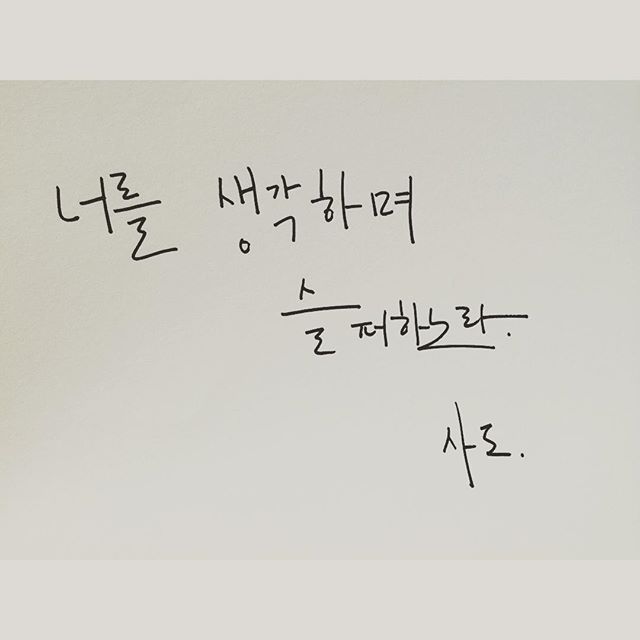 너를 생각하며
슬퍼하노라.
사도.